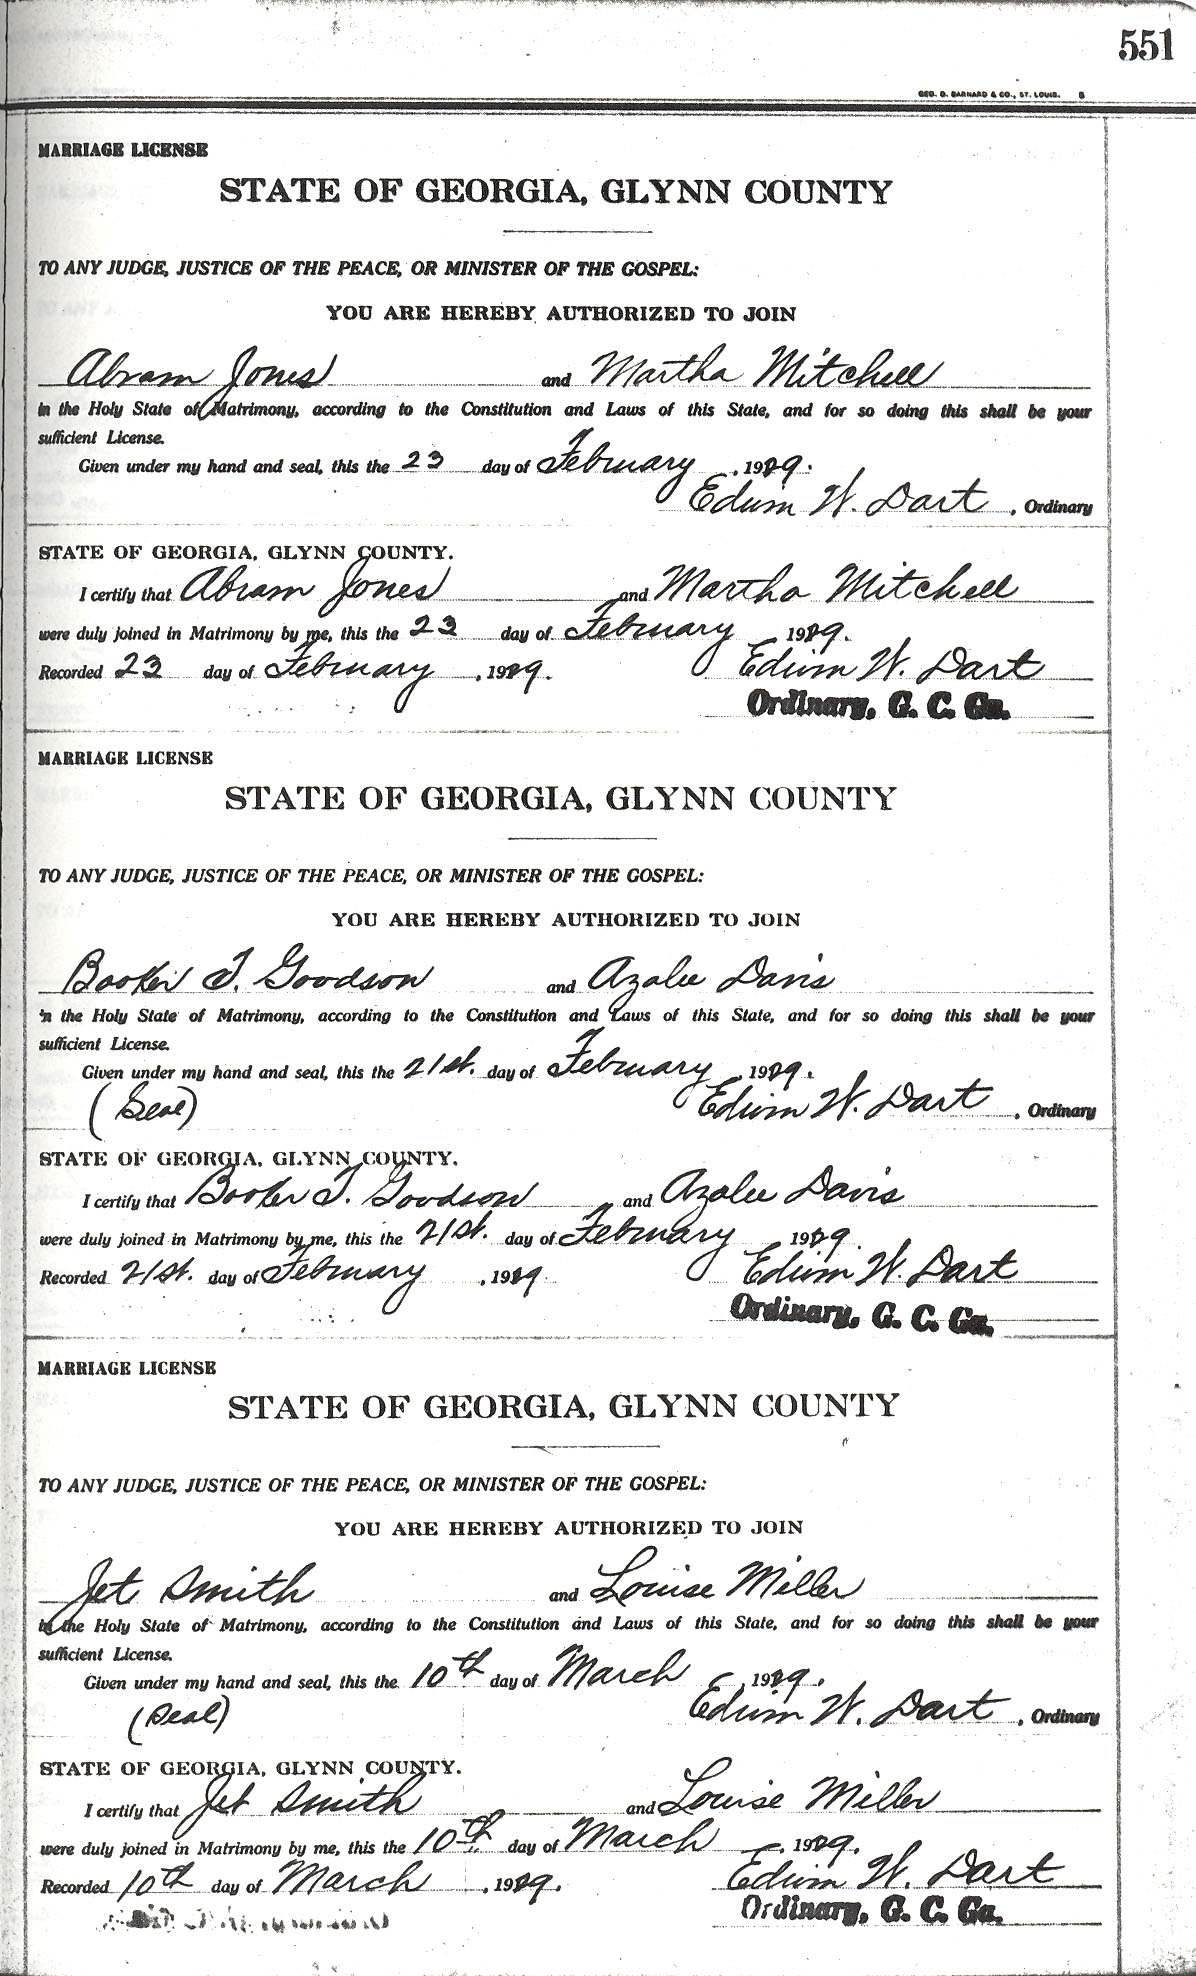 551
GEO. D. BARNARD & CO., ST. LOUIS. S
MARRIAGE LICENSE
STATE OF GEORGIA, GLYNN COUNTY
TO ANY JUDGE, JUSTICE OF THE PEACE, OR MINISTER OF THE GOSPEL:
YOU ARE HEREBY AUTHORIZED TO JOIN
Abram Jones and Martha Mitchell
in the Holy State of Matrimony, according to the Constitution and Laws of this State, and for so doing this shall be your
sufficient License.
Given under my hand and seal, this the 23 day of February, 1929.
Edwin W. Dart, Ordinary
STATE OF GEORGIA, GLYNN COUNTY.
I certify that Abram Jones and Martha Mitchell
were duly joined in Matrimony by me, this the 23 day of February 1929.
Recorded 23 day of February, 1929. Edwin W. Dart
Ordinary, G. C. Ga.
MARRIAGE LICENSE
STATE OF GEORGIA, GLYNN COUNTY
TO ANY JUDGE, JUSTICE OF THE PEACE, OR MINISTER OF THE GOSPEL:
YOU ARE HEREBY AUTHORIZED TO JOIN
Booker T. Goodson and Azalee Davis
in the Holy State of Matrimony, according to the Constitution and Laws of this State, and for so doing this shall be your
sufficient License.
Given under my hand and seal, this the 21st. day of February, 1929.
(Seal) Edwin W. Dart, Ordinary
STATE OF GEORGIA, GLYNN COUNTY.
I certify that Booker T. Goodson and Azalee Davis
were duly joined in Matrimony by me, this the 21st. day of February 1929.
Recorded 21st. day of February, 1929. Edwin W. Dart
Ordinary, G. C. Ga.
MARRIAGE LICENSE
STATE OF GEORGIA, GLYNN COUNTY
TO ANY JUDGE, JUSTICE OF THE PEACE, OR MINISTER OF THE GOSPEL:
YOU ARE HEREBY AUTHORIZED TO JOIN
Jet Smith and Louise Miller
in the Holy State of Matrimony, according to the Constitution and Laws of this State, and for so doing this shall be your
sufficient License.
Given under my hand and seal, this the 10th day of March, 1929.
(Seal) Edwin W. Dart, Ordinary
STATE OF GEORGIA, GLYNN COUNTY.
I certify that Jet Smith and Louise Miller
were duly joined in Matrimony by me, this the 10th day of March 1929.
Recorded 10th day of March, 1929. Edwin W. Dart
Ordinary, G. C. Ga.